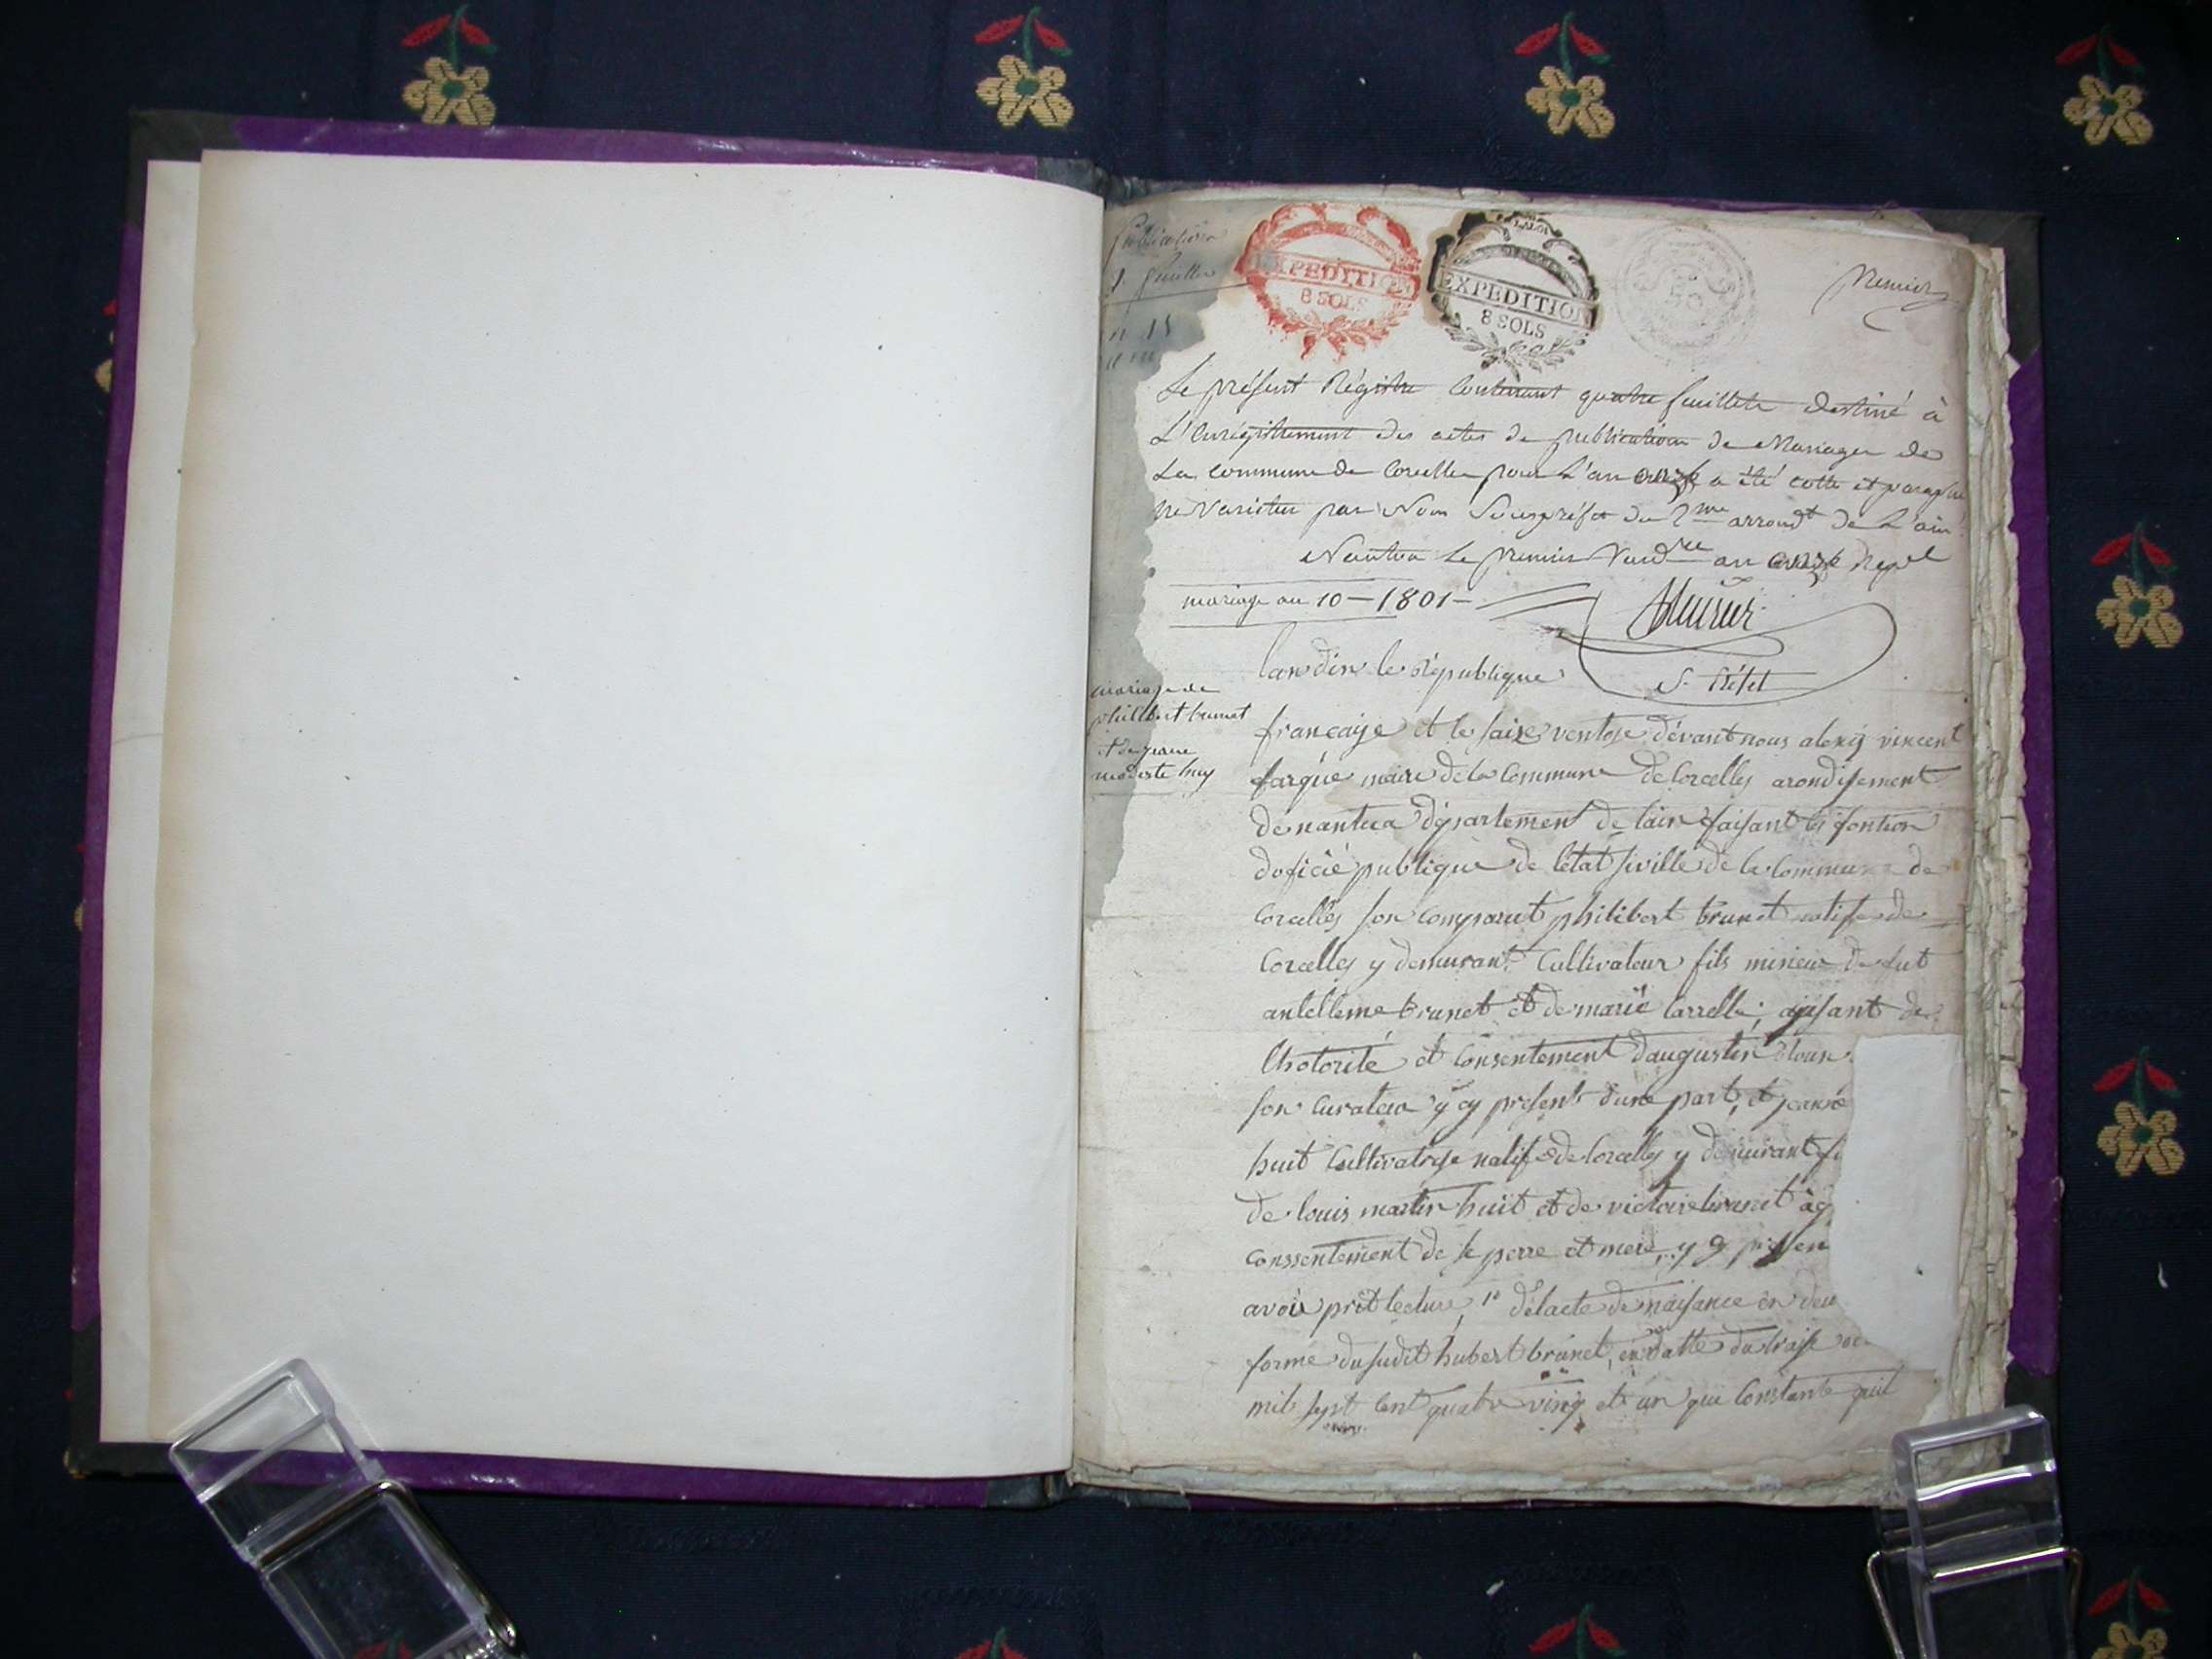 Publication
feuillet
n 15
EXPEDITION
8 SOLS
LA LOI
EXPEDITION
8 SOLS
50
premier
Le présent Régistre Contenant quatre feuillets destiné à
L'Enrégistrement des actes de publication de Mariages de
La Commune de Corcelles pour L'an a été cotté et paraphé
Ne Varietur par Nous Souspréfet du 2me arrondt de L'ain
Nantua Le premier Vendre an Repel
mariage an 10 – 1801 –
S. Préfet
lan dix le république
mariage de
philibert brunet
et de jeane
modeste huy
françaije et le saise ventose dévant nous alexij vincent
fargue maire de la Commune de Corcelles arondisement
de nantua département de lain faisant les fontion
doficié publique de létat siville de la Commune de
Corcelles son comparut philibert brunet natife de
Corcelles y demurant Cultivateur fils mineur de fut
antelleme brunet et de marie Carrelle, agisant de
lhotorité et Consentement daugustin
son Curateur y cy présent dune part, et jeanne
huit Cultivatrise natife de Corcelles y demurant fi
de louis martin huit et de victoire brunet ag
conssentement de se perre et mere, y cy présen
avoir prit lecture, 1° délacte de naisance en deu
forme du sudit hubert brunet, en datte du traise oc
mil sept cent quatre ving et un qui Constante quil